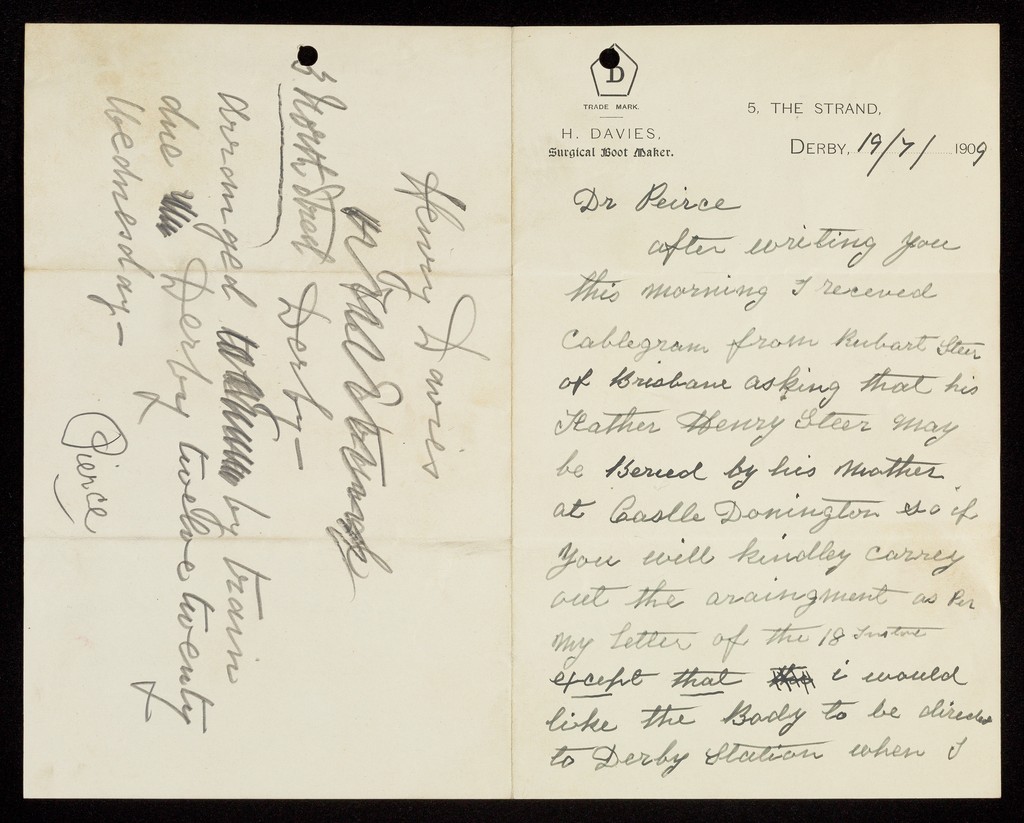 D
TRADE MARK.
H. DAVIES,
Surgical Boot Maker.
5, THE STRAND,
DERBY, 19/7/1909
Dr Peirce
after writing you
this morning I receved
Cablegram from Rubart Steer
of Brisbane asking that his
Father Henry Steer may
be Beried by his Mother
at Castle Donington so if
you will kindley carrey
out the araingment as Per
My letter of the 18
except that i would
like the Body to be directed
to Derby Station when I
Henry Davies
3 North Street Derby—
arranged by train
due Derby twelve twenty
Wednesday—
Pierce